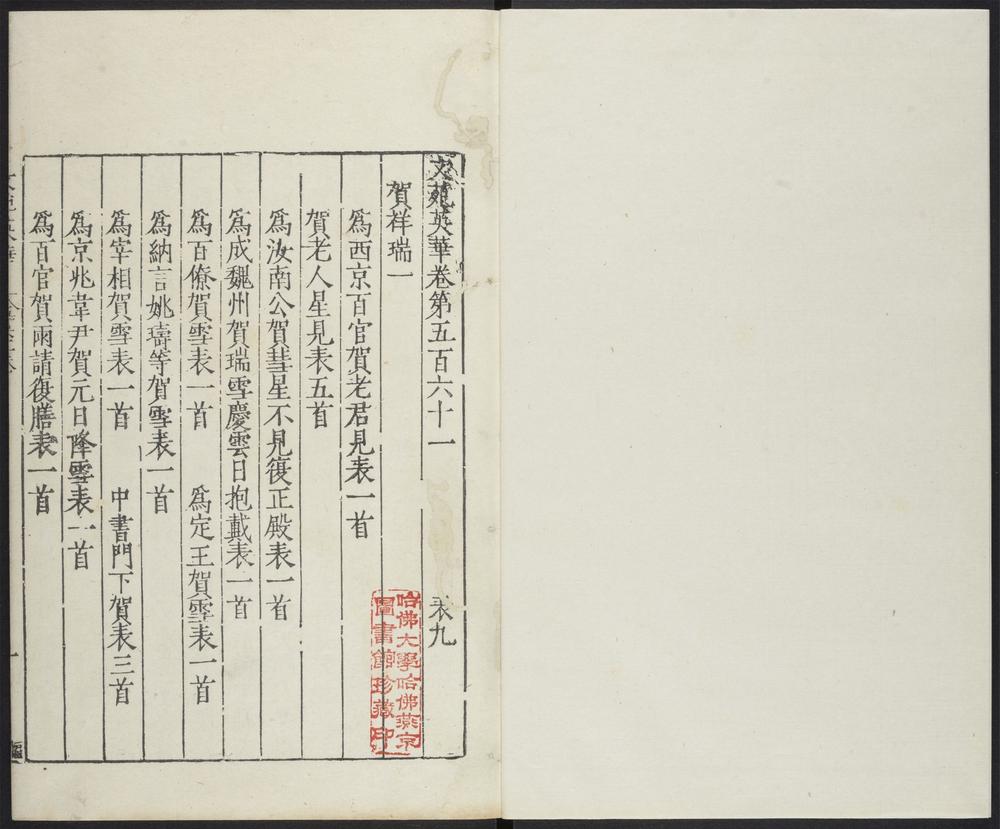 文苑英華卷第五百六十一 表九
賀祥瑞一
爲西京百官賀老君見表一首
賀老人星見表五首
爲汝南公賀彗星不見復正殿表一首
爲成魏州賀瑞雪慶雲日抱戴表一首
爲百僚賀雪表一首 爲定王賀雪表一首
爲納言姚璹等賀雪表一首
爲宰相賀雪表一首 中書門下賀表三首
爲京兆韋尹賀元日降雪表一首
爲百官賀雨請復膳表一首
哈佛大學哈佛燕京
圖書館珍藏印